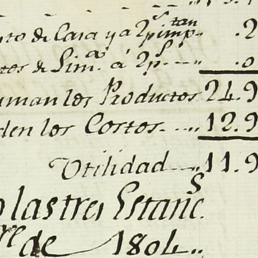 to de Casa y a 2ps. .2
tes de Sim.a á 2ps. .0
uman los Productos 24.9
den los Costos.... 12.9
Utilidad.... 11.9
lastres Estanc.s
re de 1804..